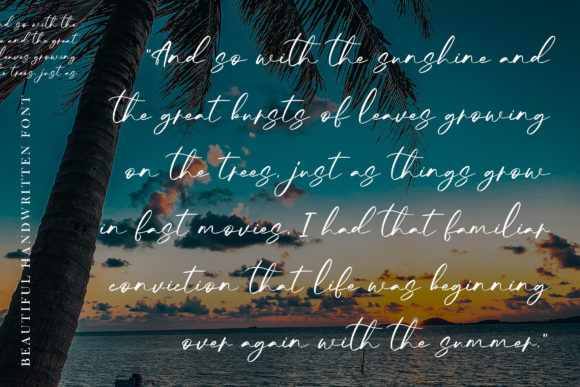 And so with the
and the great
leaves growing
trees, just as
BEAUTIFUL HANDWRITTEN FONT
"And so with the sunshine and
the great bursts of leaves growing
on the trees, just as things grow
in fast movies, I had that familiar
conviction that life was beginning
over again with the summer."